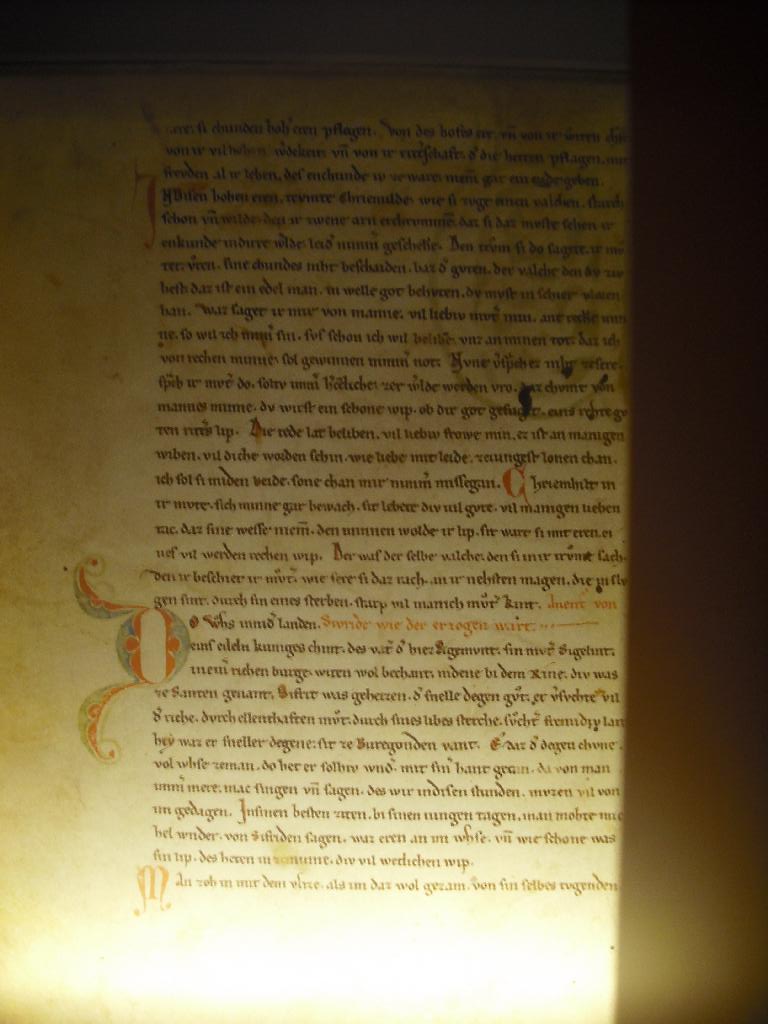 ere. si chunden hoh eren pflegen. Von des hoves ere. vñ von ir witen
von ir vil hohen werdekeit. vñ von ir ritterschaft. d̾ die herren pflagen. mit
freuden al ir leben. des enchunde iv ze ware niem̄ gar ein ende geben.
In disen hohen eren. trovmte Chriemilde. wie si zvge einen valchen. starch
schon vñ wilde. den ir zwene arn erchrummē. daz si daz mvste sehen ir
enkunde in dirre werlde. leid̾ nimm̄ geschehē. Den trovm si do sagete. ir mv
ter. Vten. sine chundes niht bescheiden. baz d̾ gvten. der valche den dv zív
hest. daz ist ein edel man. in welle got behvten. dv mvst in schier vloren
han. Waz saget ir mir von manne. vil liebiv mvt̾ min. ane recken min
ne. so wil ich imm̄ sin. svs schon ich wil beliben. vnz an minen tot. daz ich
von rechen minne. sol gewinnen nimm̄ not. Nvne v̾spͥch ez niht ze sere.
spͣch ir mvt̾ do. soltv imm̄ h̾celiche. zer werlde werden vro. daz chvmt von
mannes minne. dv wirst ein schone wip. ob dir got gefuget. eins rehte gv
ten rit̾s lip. Die rede lat beliben. vil liebiv frowe min. ez ist an manigen
wiben. vil diche worden schin. wie liebe mit leide. ze iungest lonen chan.
ich sol si miden beide. sone chan mir nimm̄ missegan. Chriemhilt in
ir mvte. sich minne gar bewach. sit lebete div vil gvte. vil manigen lieben
tac. daz sine wesse niem̄. den minnen wolde ir lip. sit wart si mit eren. ei
nes vil werden rechen wip. Der was der selbe valche. den si in ir trovme sach.
den ir beschiet ir mvt̾. wie sere si daz rach. an ir nehsten magen. die in slv
gen sint. durch sin eines sterben. starp vil manich mvt̾ kint. Auent̾ von
Sivride wie der erzogen wart.
Do whs in nid̾landen.
eins edeln kuniges chint. des vat̾ d̾ hiez Sigemvnt. sin mvt̾ Sigelint.
in ein̾ richen burge. witen wol bechant. nidene bi dem Rine. div was
ze Santen genant. Sifrit was geheizen. d̾ snelle degen gvt. er v̾svchte vil
d̾ riche. dvrch ellenthaften mvt. durch sines libes sterche. svcht̾ fremidiv lant
hey waz er sneller degene. sit ze Buregonden vant. E daz d̾ degen chvne.
vol whse ze man. do het er solhiv wnd̾. mit sin̾ hant getan. da von man
imm̄ mere. mac singen vñ sagen. des wir in disen stunden. mvzen vil von
im gedagen. In sinen besten ziten. bi sinen iungen tagen. man mohte mi
hel wnder. von Sifriden sagen. waz eren an im whse. vñ wie schone was
sin lip. des heten in ze minne. div vil wetlichen wip.
Man zoh in mit dem vlize. als im daz wol gezam. von sin selbes tvgenden